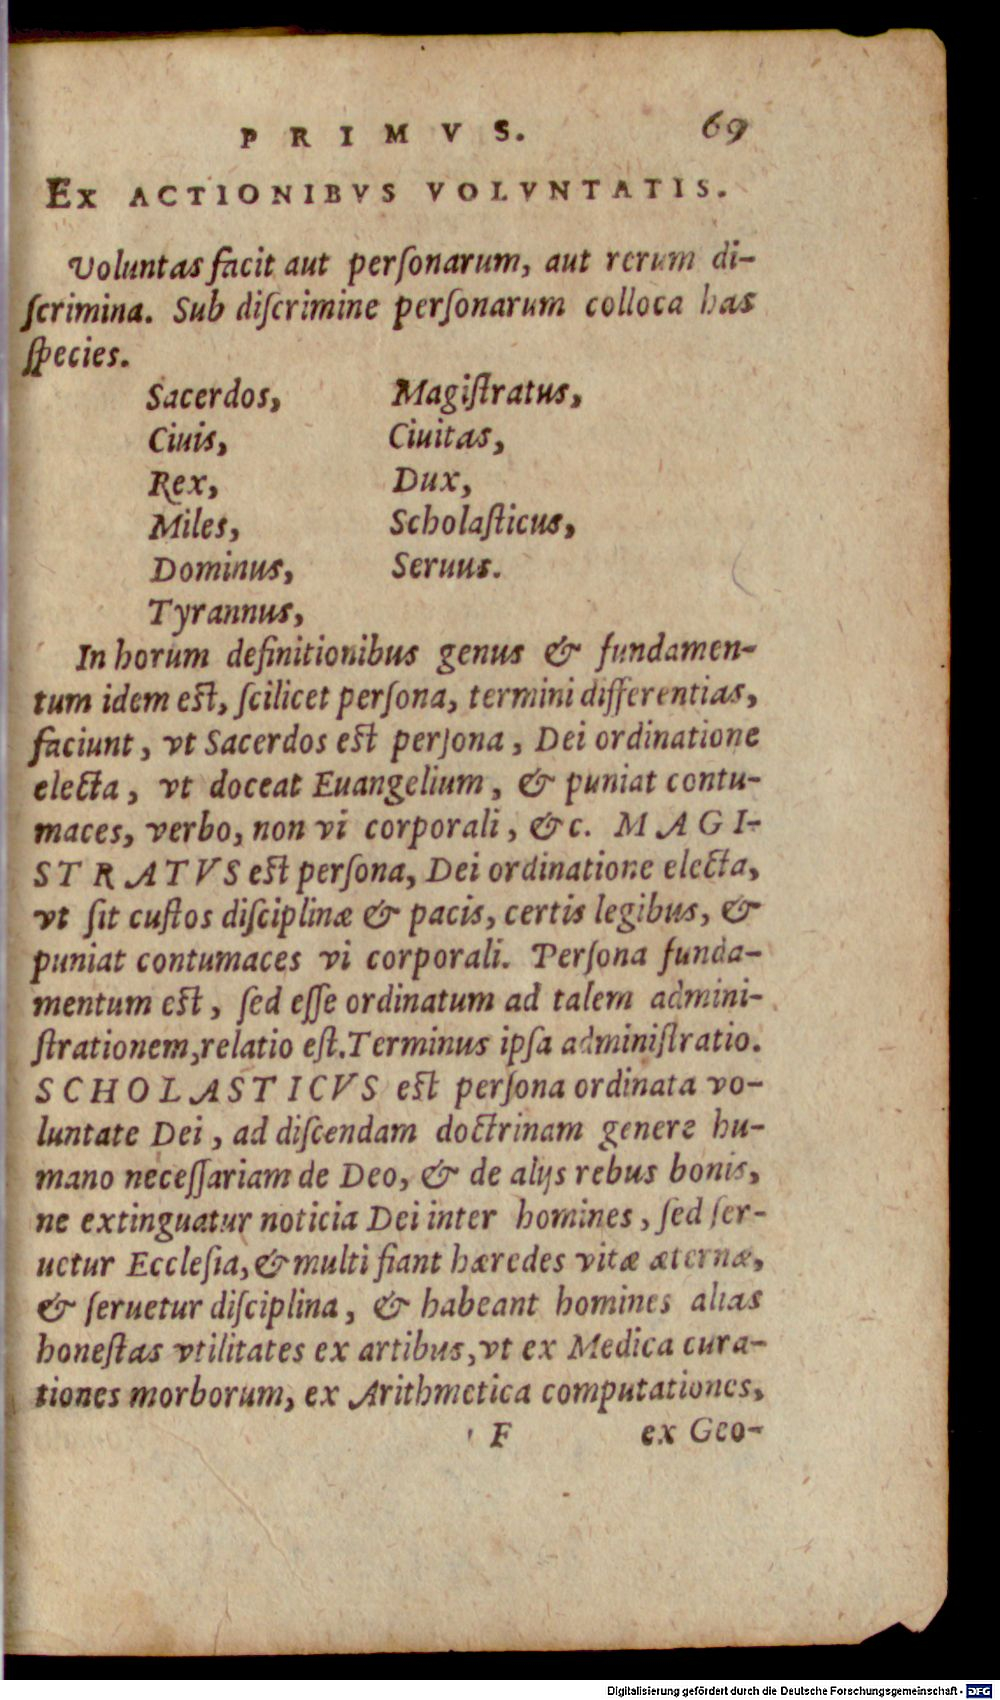 PRIMVS. 69
EX ACTIONIBVS VOLVNTATIS.
Voluntas facit aut perſonarum, aut rerum di-
ſcrimina. Sub diſcrimine perſonarum colloca has
ſpecies.
Sacerdos, Magiſtratus,
Ciuis, Ciuitas,
Rex, Dux,
Miles, Scholaſticus,
Dominus, Seruus.
Tyrannus,
In horum definitionibus genus & fundamen-
tum idem eſt, ſcilicet perſona, termini differentias,
faciunt, vt Sacerdos eſt perſona, Dei ordinatione
electa, vt doceat Euangelium, & puniat contu-
maces, verbo, non vi corporali, &c. MAGI-
STRATVS eſt perſona, Dei ordinatione electa,
vt ſit cuſtos diſciplinæ & pacis, certis legibus, &
puniat contumaces vi corporali. Perſona funda-
mentum eſt, ſed eſſe ordinatum ad talem admini-
ſtrationem, relatio eſt. Terminus ipſa adminiſtratio.
SCHOLASTICVS eſt perſona ordinata vo-
luntate Dei, ad diſcendam doctrinam genere hu-
mano neceſſariam de Deo, & de alijs rebus bonis,
ne extinguatur noticia Dei inter homines, ſed ſer-
uetur Eccleſia, & multi fiant hæredes vitæ æternæ,
& ſeruetur diſciplina, & habeant homines alias
honeſtas vtilitates ex artibus, vt ex Medica cura-
tiones morborum, ex Arithmetica computationes,
F ex Geo-
Digitalisierung gefördert durch die Deutsche Forschungsgemeinschaft - DFG